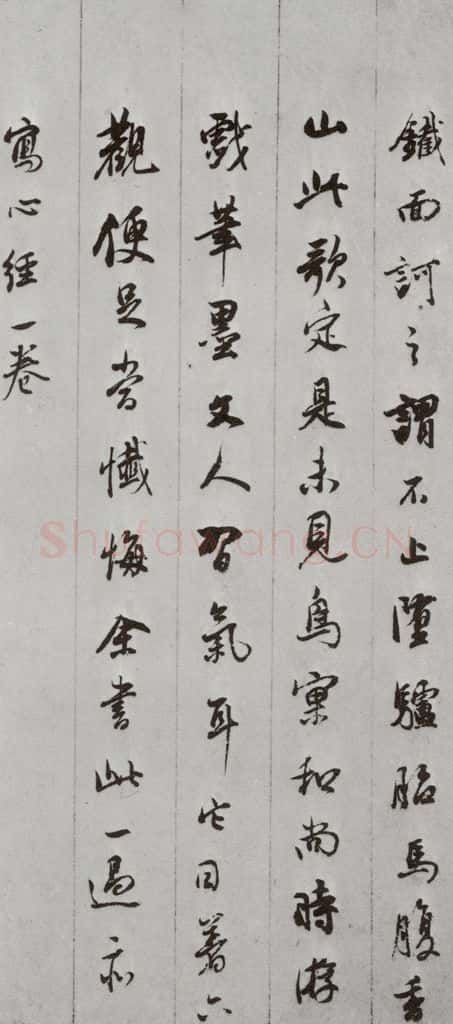 鐵面訶之謂不止墮驢胎馬腹香
山此歌定是未見鳥窠和尚時游
戲筆墨文人習氣耳它日著六
觀便足當懺悔余書此一過亦
寫心經一卷
Shufawang.CN